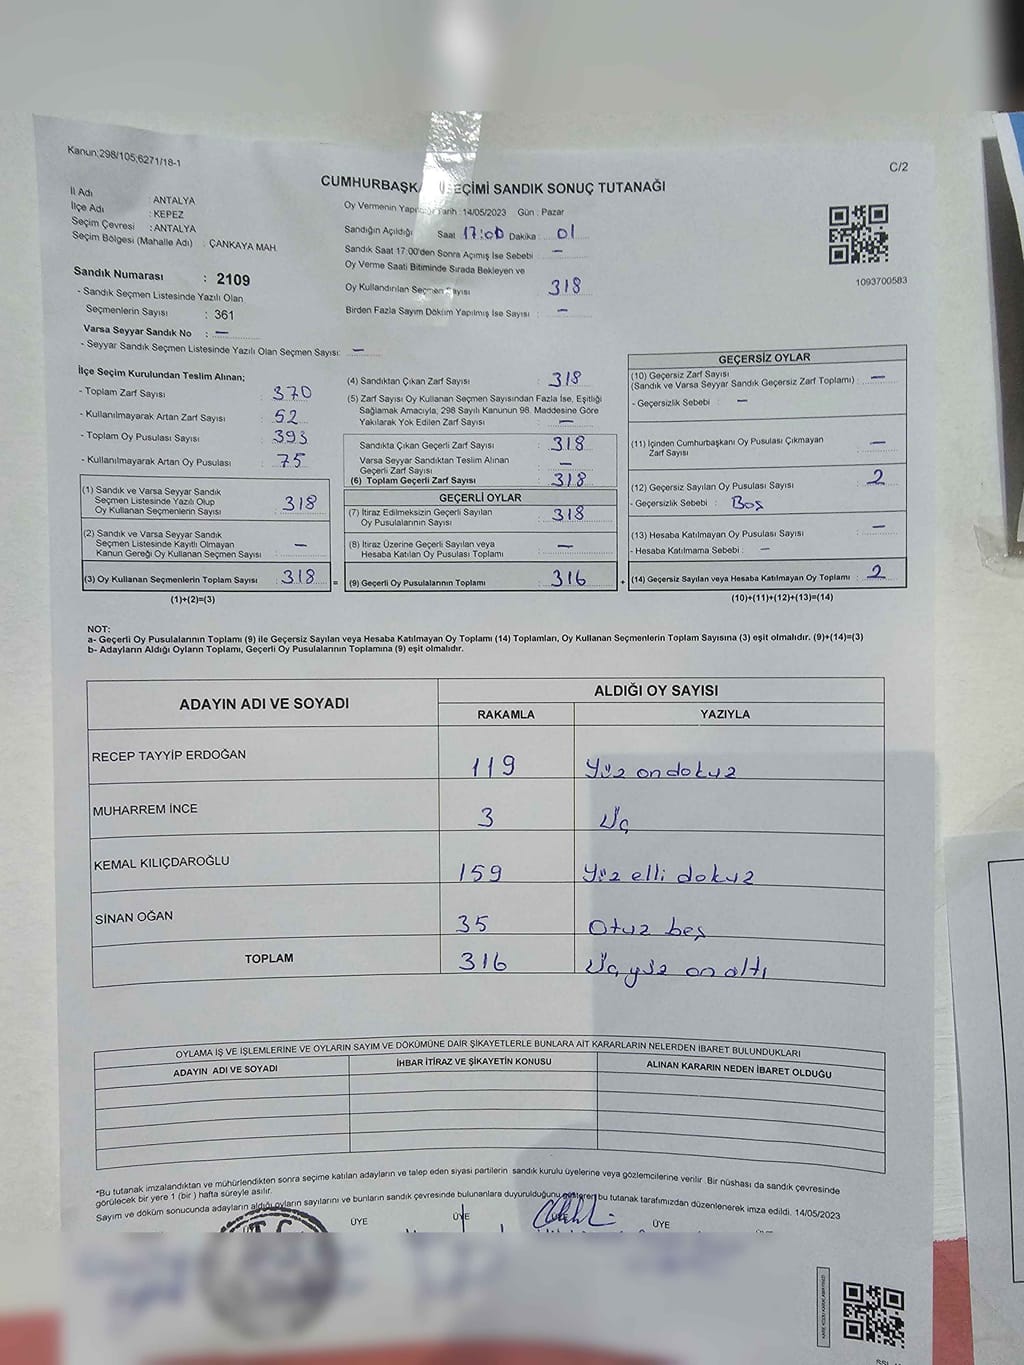 Kanun;298/105;6271/18-1
C/2
CUMHURBAŞKA EÇİMİ SANDIK SONUÇ TUTANAĞI
İl Adı : ANTALYA
İlçe Adı : KEPEZ
Seçim Çevresi : ANTALYA
Seçim Bölgesi (Mahalle Adı) : ÇANKAYA MAH.
Oy Vermenin Yapıldığı Tarih : 14/05/2023 Gün : Pazar
Sandığın Açıldığı Saat 17:00 Dakika : 01
Sandık Saat 17:00'den Sonra Açımış İse Sebebi : —
Oy Verme Saati Bitiminde Sırada Bekleyen ve
Oy Kullandırılan Seçmen Sayısı : 318
Birden Fazla Sayım Döküm Yapılmış İse Sayısı : —
1093700583
Sandık Numarası : 2109
- Sandık Seçmen Listesinde Yazılı Olan
Seçmenlerin Sayısı : 361
Varsa Seyyar Sandık No : —
- Seyyar Sandık Seçmen Listesinde Yazılı Olan Seçmen Sayısı: —
İlçe Seçim Kurulundan Teslim Alınan;
- Toplam Zarf Sayısı : 370
- Kullanılmayarak Artan Zarf Sayısı : 52
- Toplam Oy Pusulası Sayısı : 393
- Kullanılmayarak Artan Oy Pusulası : 75
(1) Sandık ve Varsa Seyyar Sandık
Seçmen Listesinde Yazılı Olup
Oy Kullanan Seçmenlerin Sayısı : 318
(2) Sandık ve Varsa Seyyar Sandık
Seçmen Listesinde Kayıtlı Olmayan
Kanun Gereği Oy Kullanan Seçmen Sayısı : —
(3) Oy Kullanan Seçmenlerin Toplam Sayısı : 318 =
(1)+(2)=(3)
(4) Sandıktan Çıkan Zarf Sayısı : 318
(5) Zarf Sayısı Oy Kullanan Seçmen Sayısından Fazla İse, Eşitliği
Sağlamak Amacıyla, 298 Sayılı Kanunun 98. Maddesine Göre
Yakılarak Yok Edilen Zarf Sayısı : —
Sandıkta Çıkan Geçerli Zarf Sayısı : 318
Varsa Seyyar Sandıktan Teslim Alınan
Geçerli Zarf Sayısı : —
(6) Toplam Geçerli Zarf Sayısı : 318
GEÇERLİ OYLAR
(7) İtiraz Edilmeksizin Geçerli Sayılan
Oy Pusulalarının Sayısı : 318
(8) İtiraz Üzerine Geçerli Sayılan veya
Hesaba Katılan Oy Pusulası Toplamı : —
(9) Geçerli Oy Pusulalarının Toplamı : 316 +
GEÇERSİZ OYLAR
(10) Geçersiz Zarf Sayısı
(Sandık ve Varsa Seyyar Sandık Geçersiz Zarf Toplamı) : —
- Geçersizlik Sebebi : —
(11) İçinden Cumhurbaşkanı Oy Pusulası Çıkmayan
Zarf Sayısı : —
(12) Geçersiz Sayılan Oy Pusulası Sayısı : 2
- Geçersizlik Sebebi : Boş
(13) Hesaba Katılmayan Oy Pusulası Sayısı : —
- Hesaba Katılmama Sebebi : —
(14) Geçersiz Sayılan veya Hesaba Katılmayan Oy Toplamı : 2
(10)+(11)+(12)+(13)=(14)
NOT:
a- Geçerli Oy Pusulalarının Toplamı (9) ile Geçersiz Sayılan veya Hesaba Katılmayan Oy Toplamı (14) Toplamları, Oy Kullanan Seçmenlerin Toplam Sayısına (3) eşit olmalıdır. (9)+(14)=(3)
b- Adayların Aldığı Oyların Toplamı, Geçerli Oy Pusulalarının Toplamına (9) eşit olmalıdır.
ADAYIN ADI VE SOYADI
ALDIĞI OY SAYISI
RAKAMLA YAZIYLA
RECEP TAYYİP ERDOĞAN 119 Yüz on dokuz
MUHARREM İNCE 3 Üç
KEMAL KILIÇDAROĞLU 159 Yüz elli dokuz
SİNAN OĞAN 35 Otuz beş
TOPLAM 316 Üç yüz on altı
OYLAMA İŞ VE İŞLEMLERİNE VE OYLARIN SAYIM VE DÖKÜMÜNE DAİR ŞİKAYETLERLE BUNLARA AİT KARARLARIN NELERDEN İBARET BULUNDUKLARI
ADAYIN ADI VE SOYADI İHBAR İTİRAZ VE ŞİKAYETİN KONUSU ALINAN KARARIN NEDEN İBARET OLDUĞU
*Bu tutanak imzalandıktan ve mühürlendikten sonra seçime katılan adayların ve talep eden siyasi partilerin sandık kurulu üyelerine veya gözlemcilerine verilir. Bir nüshası da sandık çevresinde
görülecek bir yere 1 (bir) hafta süreyle asılır.
Sayım ve döküm sonucunda adayların aldığı oyların sayılarını ve bunların sandık çevresinde bulunanlara duyurulduğunu gösteren bu tutanak tarafımızdan düzenlenerek imza edildi. 14/05/2023
ÜYE ÜYE ÜYE